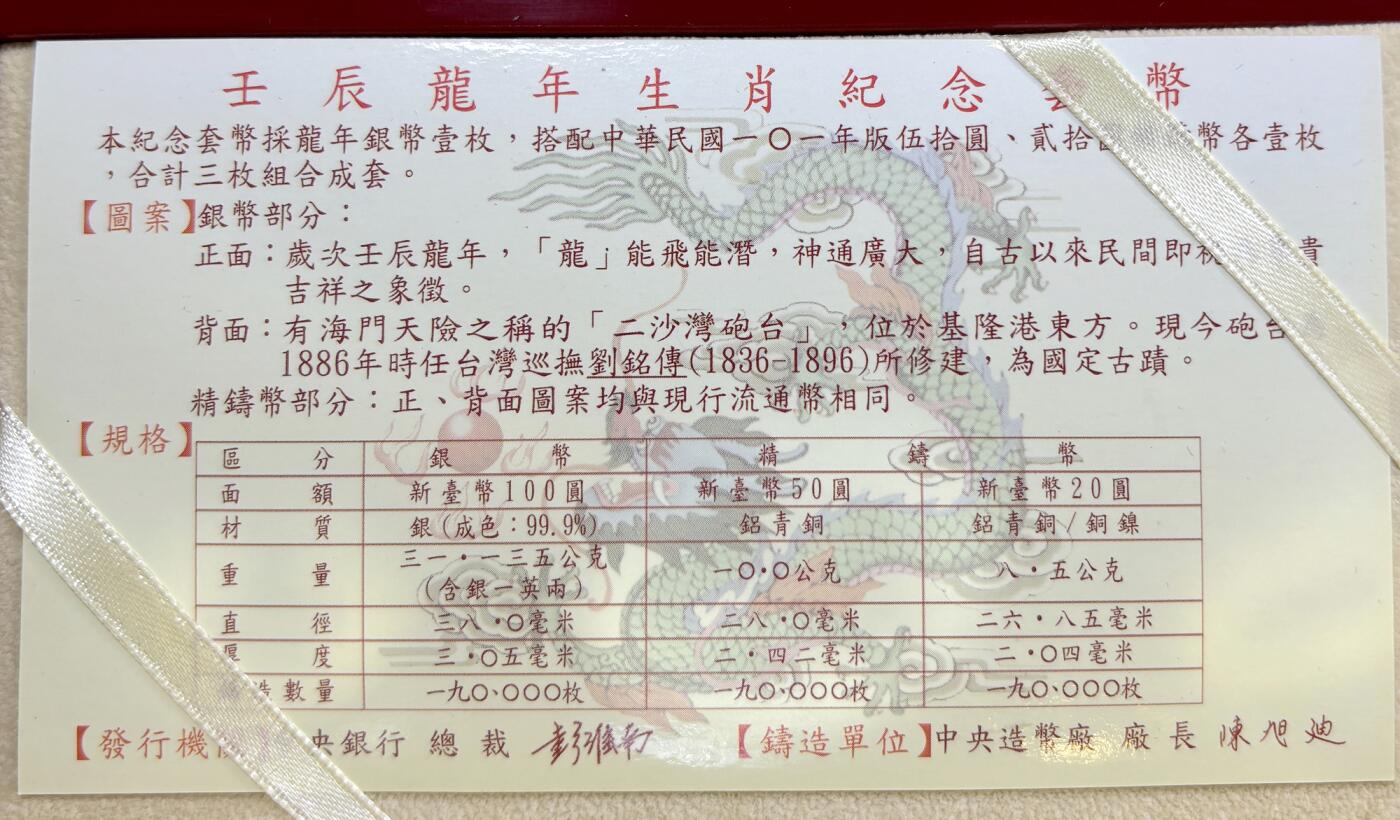 壬辰龍年生肖紀念套幣
本紀念套幣採龍年銀幣壹枚，搭配中華民國一〇一年版伍拾圓、貳拾幣各壹枚
，合計三枚組合成套。
【圖案】銀幣部分：
正面：歲次壬辰龍年，「龍」能飛能潛，神通廣大，自古以來民間即視貴
吉祥之象徵。
背面：有海門天險之稱的「二沙灣砲台」，位於基隆港東方。現今砲台
1886年時任台灣巡撫劉銘傳(1836-1896)所修建，為國定古蹟。
精鑄幣部分：正、背面圖案均與現行流通幣相同。
【規格】
區分 銀幣 精鑄幣
面額 新臺幣100圓 新臺幣50圓 新臺幣20圓
材質 銀(成色：99.9%) 鋁青銅 鋁青銅/銅鎳
重量 三一・一三五公克 一〇・〇公克 八・五公克
(含銀一英兩)
直徑 三八・〇毫米 二八・〇毫米 二六・八五毫米
厚度 三・〇五毫米 二・四二毫米 二・〇四毫米
造數量 一九〇、〇〇〇枚 一九〇、〇〇〇枚 一九〇、〇〇〇枚
【發行機央銀行 總裁 彭淮南 【鑄造單位】中央造幣廠 廠長 陳旭迪